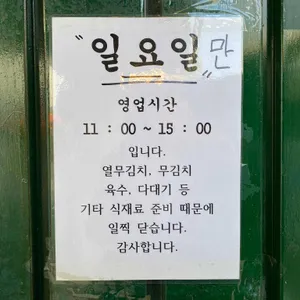 "일요일"만
영업시간
11 : 00 ~ 15 : 00
입니다.
열무김치, 무김치
육수, 다대기 등
기타 식재료 준비 때문에
일찍 닫습니다.
감사합니다.